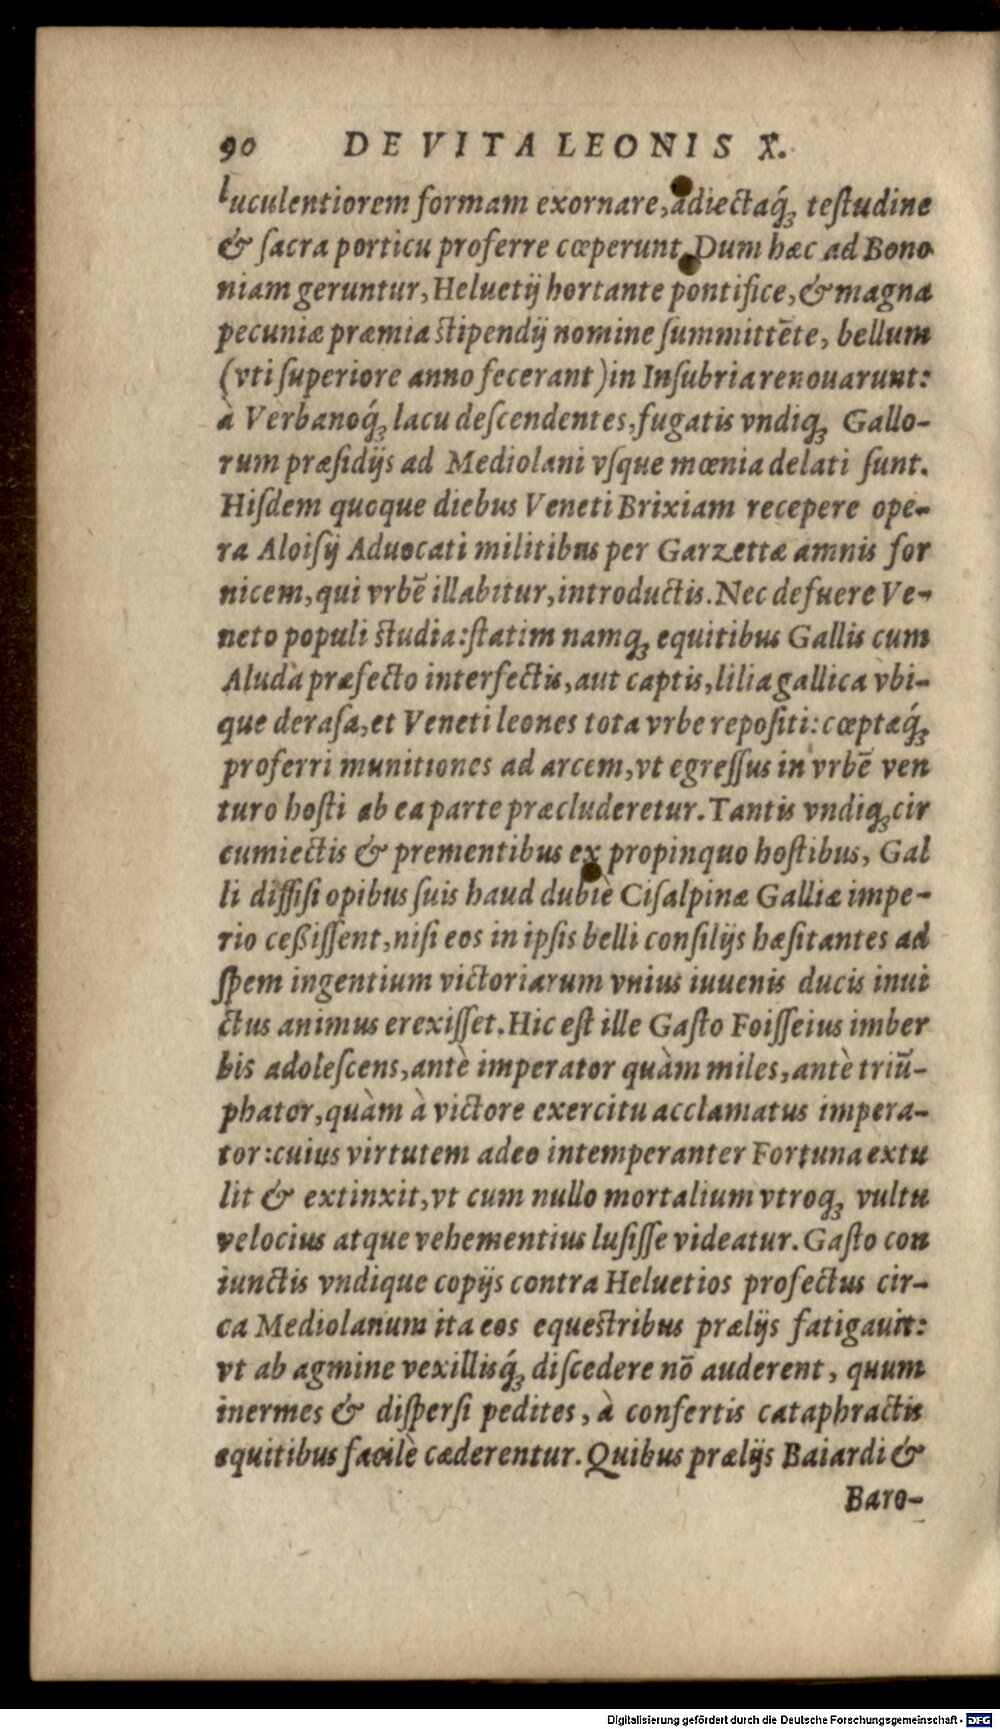 90 DE VITA LEONIS X.
luculentiorem formam exornare, adiectaq́ꝫ teſtudine
& ſacra porticu proferre cœperunt. Dum hæc ad Bono
niam geruntur, Heluetij hortante pontifice, & magna
pecuniæ præmia stipendij nomine ſummittēte, bellum
(vti ſuperiore anno fecerant) in Inſubria renouarunt:
à Verbanoq́ꝫ lacu deſcendentes, fugatis vndiqꝫ Gallo-
rum præſidijs ad Mediolani vſque mœnia delati ſunt.
Hiſdem quoque diebus Veneti Brixiam recepere ope-
ra Aloiſij Aduocati militibus per Garzettæ amnis for
nicem, qui vrbē illabitur, introductis. Nec defuere Ve-
neto populi studia: ſtatim namqꝫ equitibus Gallis cum
Aluda præfecto interfectis, aut captis, lilia gallica vbi-
que deraſa, et Veneti leones tota vrbe repoſiti: cœptæq́ꝫ
proferri munitiones ad arcem, vt egreſſus in vrbē ven
turo hoſti ab ea parte præcluderetur. Tantis vndiqꝫ cir
cumiectis & prementibus ex propinquo hoſtibus, Gal
li diffiſi opibus ſuis haud dubiè Ciſalpinæ Galliæ impe-
rio ceßiſſent, niſi eos in ipſis belli conſilijs hæſitantes ad
ſpem ingentium victoriarum vnius iuuenis ducis inui
ctus animus erexiſſet. Hic eſt ille Gaſto Foiſſeius imber
bis adoleſcens, antè imperator quàm miles, antè triū-
phator, quàm à victore exercitu acclamatus impera-
tor: cuius virtutem adeo intemperanter Fortuna extu
lit & extinxit, vt cum nullo mortalium vtroqꝫ vultu
velocius atque vehementius luſiſſe videatur. Gaſto con
iunctis vndique copijs contra Heluetios profectus cir-
ca Mediolanum ita eos equestribus prælijs fatigauit:
vt ab agmine vexillisq́ꝫ diſcedere nō auderent, quum
inermes & diſperſi pedites, à confertis cataphractis
equitibus facilè cæderentur. Quibus prælijs Baiardi &
Baro-
Digitalisierung gefördert durch die Deutsche Forschungsgemeinschaft - DFG